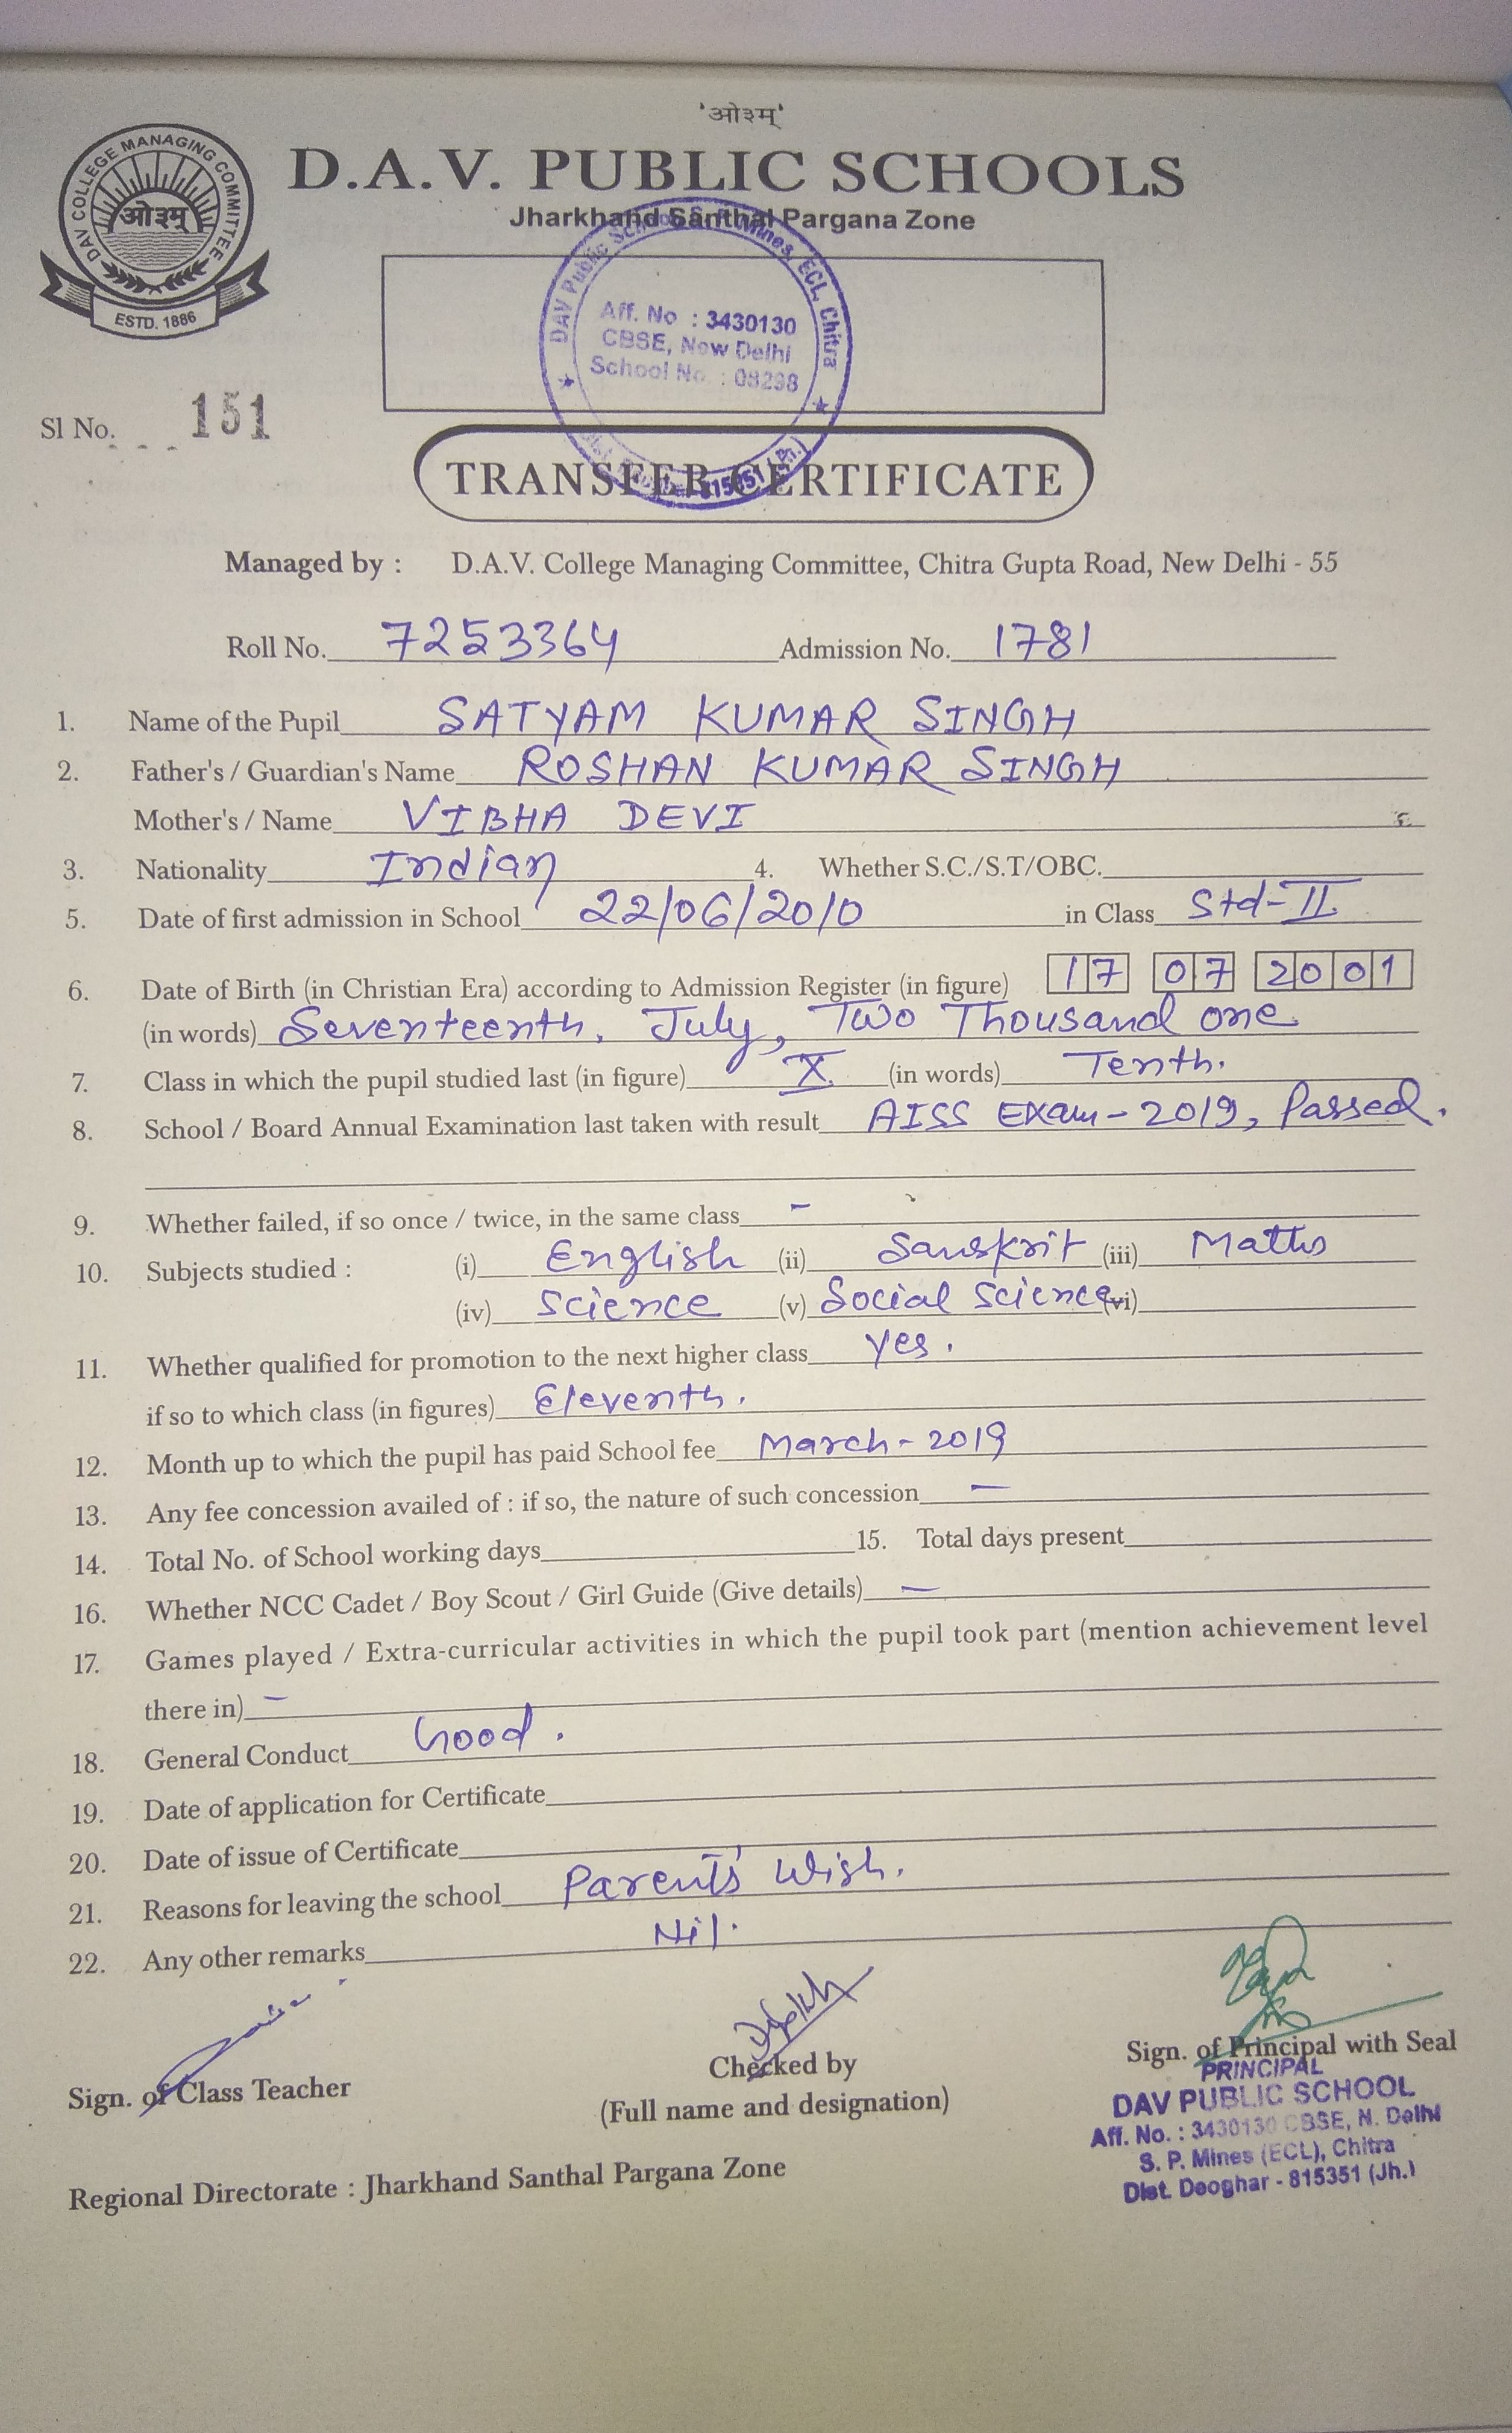 'ओ३म्'
DAV COLLEGE MANAGING COMMITTEE
ओ३म्
ESTD. 1886
D.A.V. PUBLIC SCHOOLS
Jharkhand Santhal Pargana Zone
DAV Public School, S. P. Mines, ECL, Chitra
Aff. No : 3430130
CBSE, New Delhi
School No. : 08298
815351
Sl No. 151
TRANSFER CERTIFICATE
Managed by : D.A.V. College Managing Committee, Chitra Gupta Road, New Delhi - 55
Roll No. 7253364 Admission No. 1781
1. Name of the Pupil SATYAM KUMAR SINGH
2. Father's / Guardian's Name ROSHAN KUMAR SINGH
Mother's / Name VIBHA DEVI
3. Nationality Indian 4. Whether S.C./S.T/OBC.
5. Date of first admission in School 22/06/2010 in Class Std-II
6. Date of Birth (in Christian Era) according to Admission Register (in figure) 17 07 2001
(in words) Seventeenth, July, Two Thousand one
7. Class in which the pupil studied last (in figure) X (in words) Tenth.
8. School / Board Annual Examination last taken with result AISS Exam-2019, Passed.
9. Whether failed, if so once / twice, in the same class -
10. Subjects studied : (i) English (ii) Sanskrit (iii) Maths
(iv) Science (v) Social Science (vi)
11. Whether qualified for promotion to the next higher class yes.
if so to which class (in figures) Eleventh.
12. Month up to which the pupil has paid School fee March-2019
13. Any fee concession availed of : if so, the nature of such concession —
14. Total No. of School working days 15. Total days present
16. Whether NCC Cadet / Boy Scout / Girl Guide (Give details) —
17. Games played / Extra-curricular activities in which the pupil took part (mention achievement level
there in) -
18. General Conduct Good.
19. Date of application for Certificate
20. Date of issue of Certificate
21. Reasons for leaving the school Parent's Wish.
22. Any other remarks Nil.
Sign. of Class Teacher
Checked by
(Full name and designation)
Sign. of Principal with Seal
PRINCIPAL
DAV PUBLIC SCHOOL
Aff. No. : 3430130 CBSE, N. Delhi
S. P. Mines (ECL), Chitra
Dist. Deoghar - 815351 (Jh.)
Regional Directorate : Jharkhand Santhal Pargana Zone